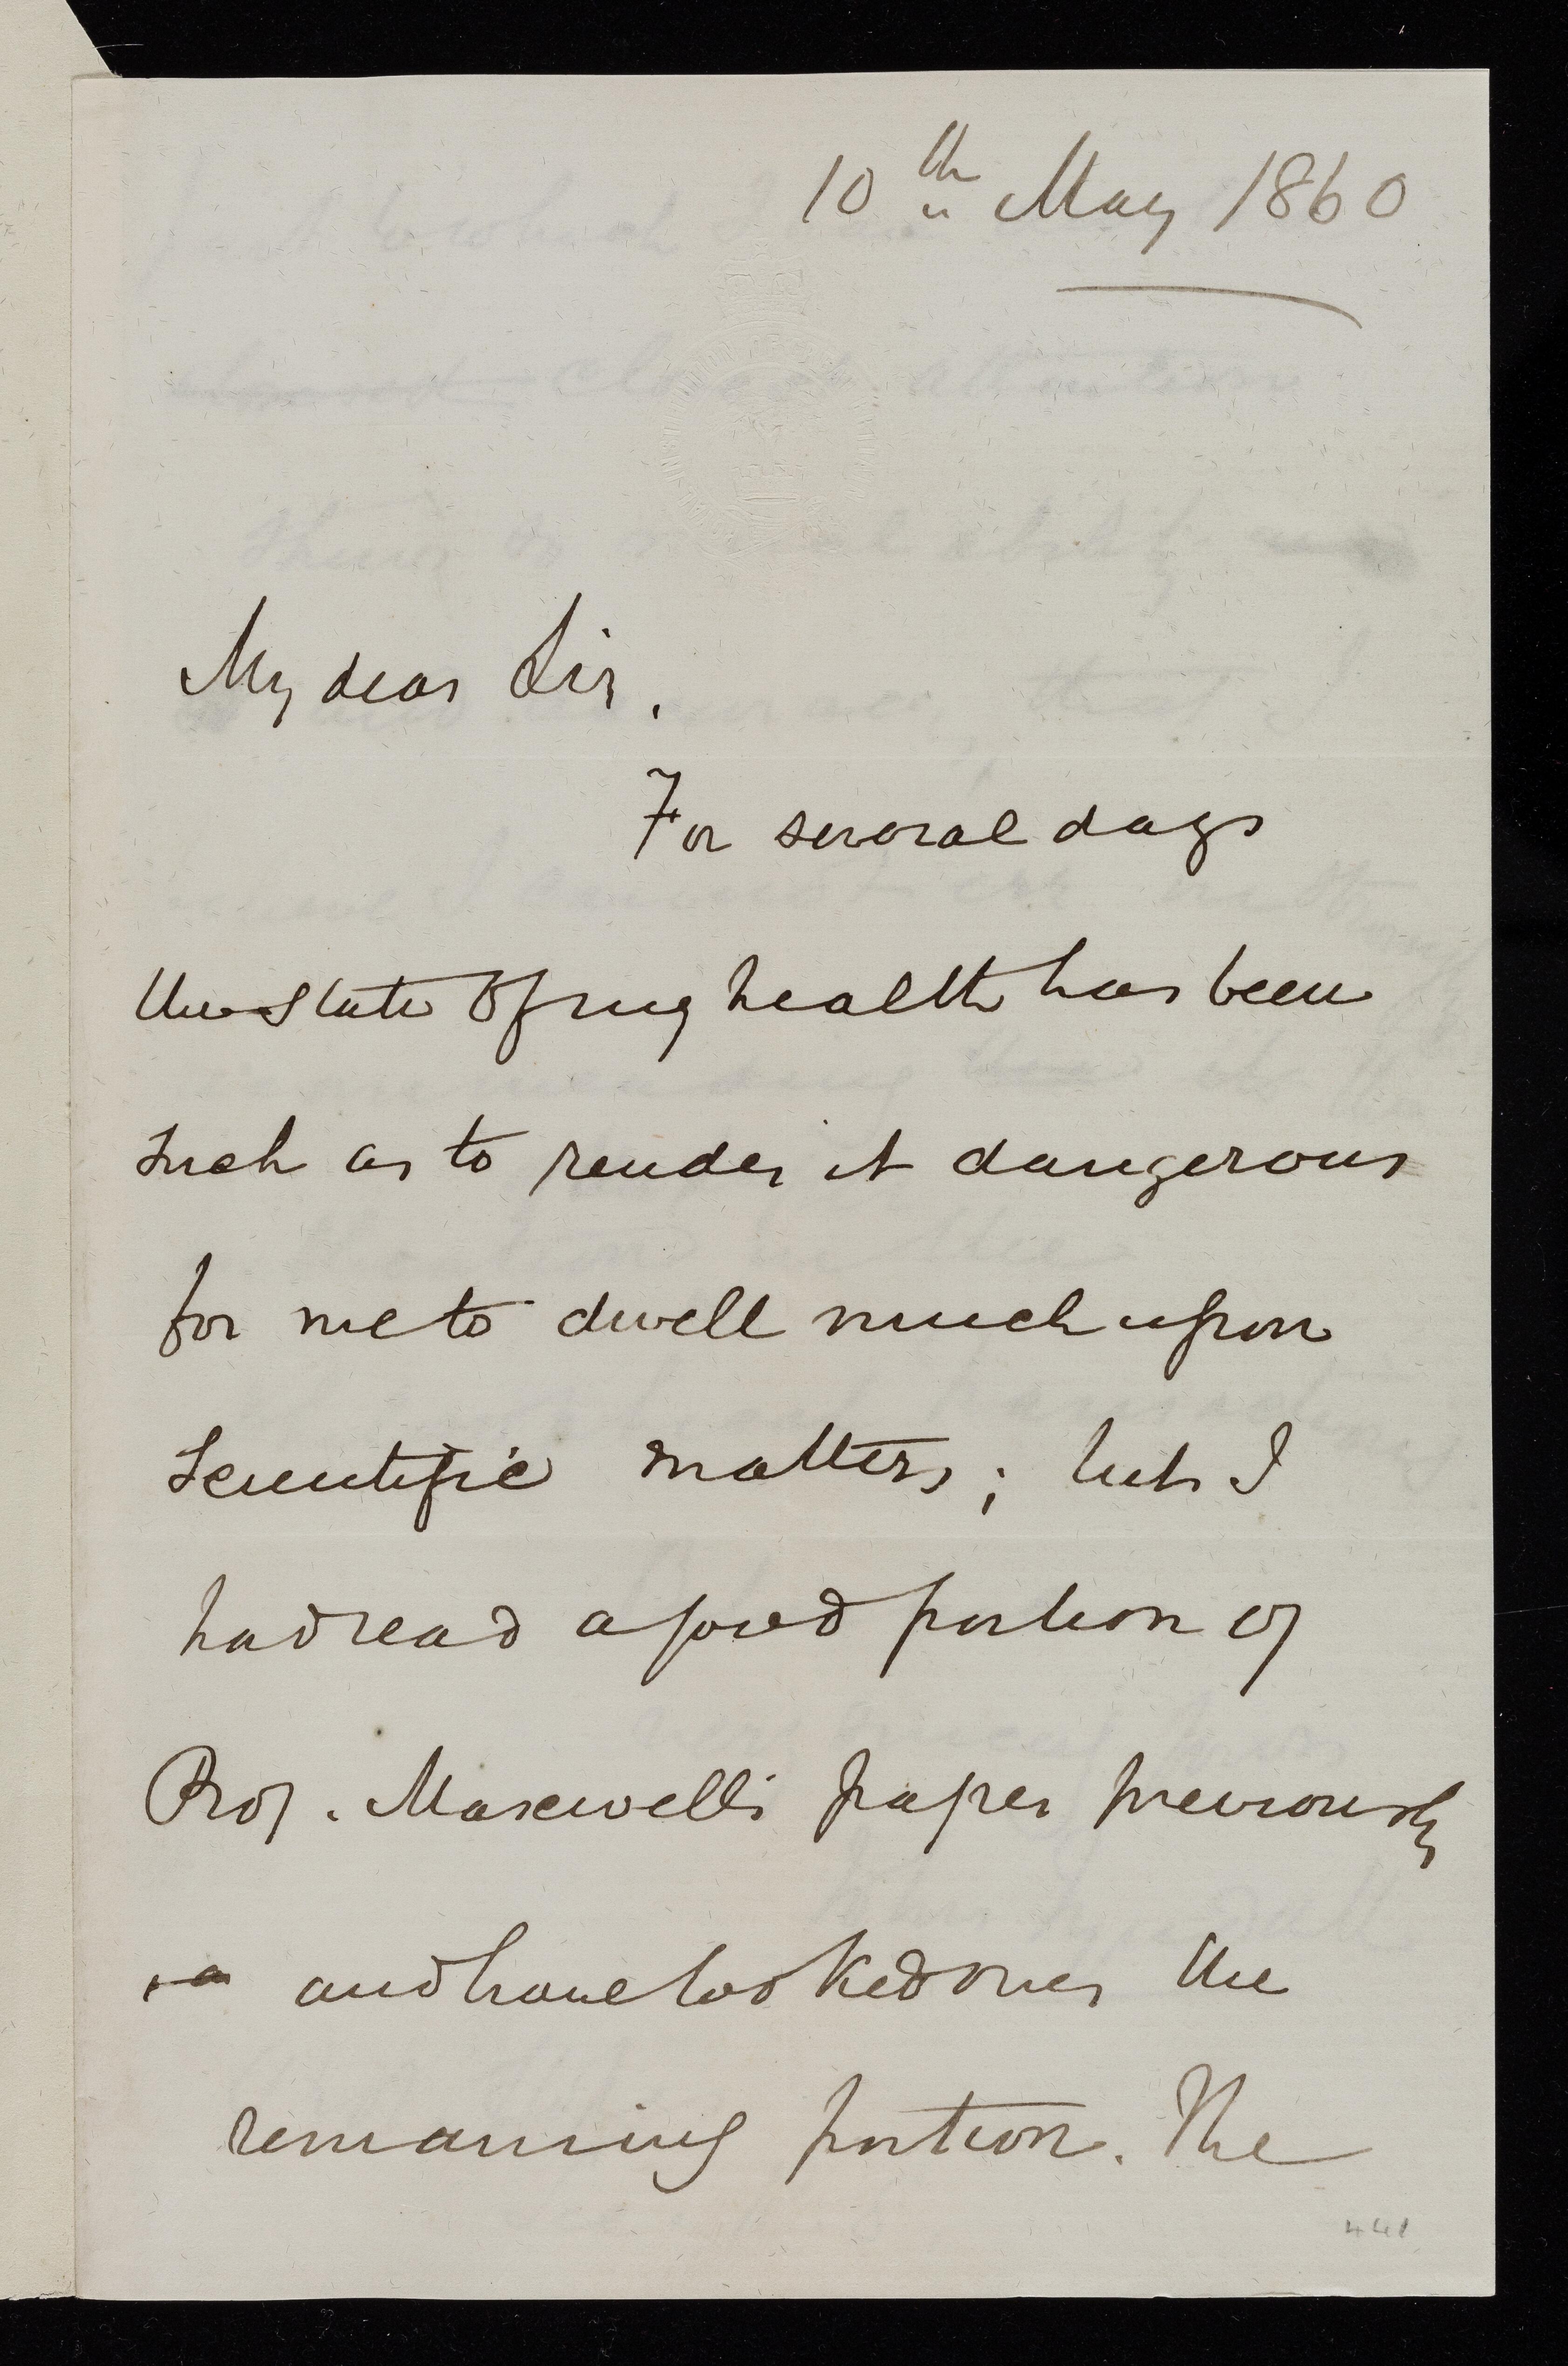 10th May 1860
My dear Sir,
For several days
the state of my health has been
such as to render it dangerous
for me to dwell much upon
scientific matters; but I
had read a good portion of
Prof. Maxwell's paper previously
and have looked over the
remaining portion. The
441